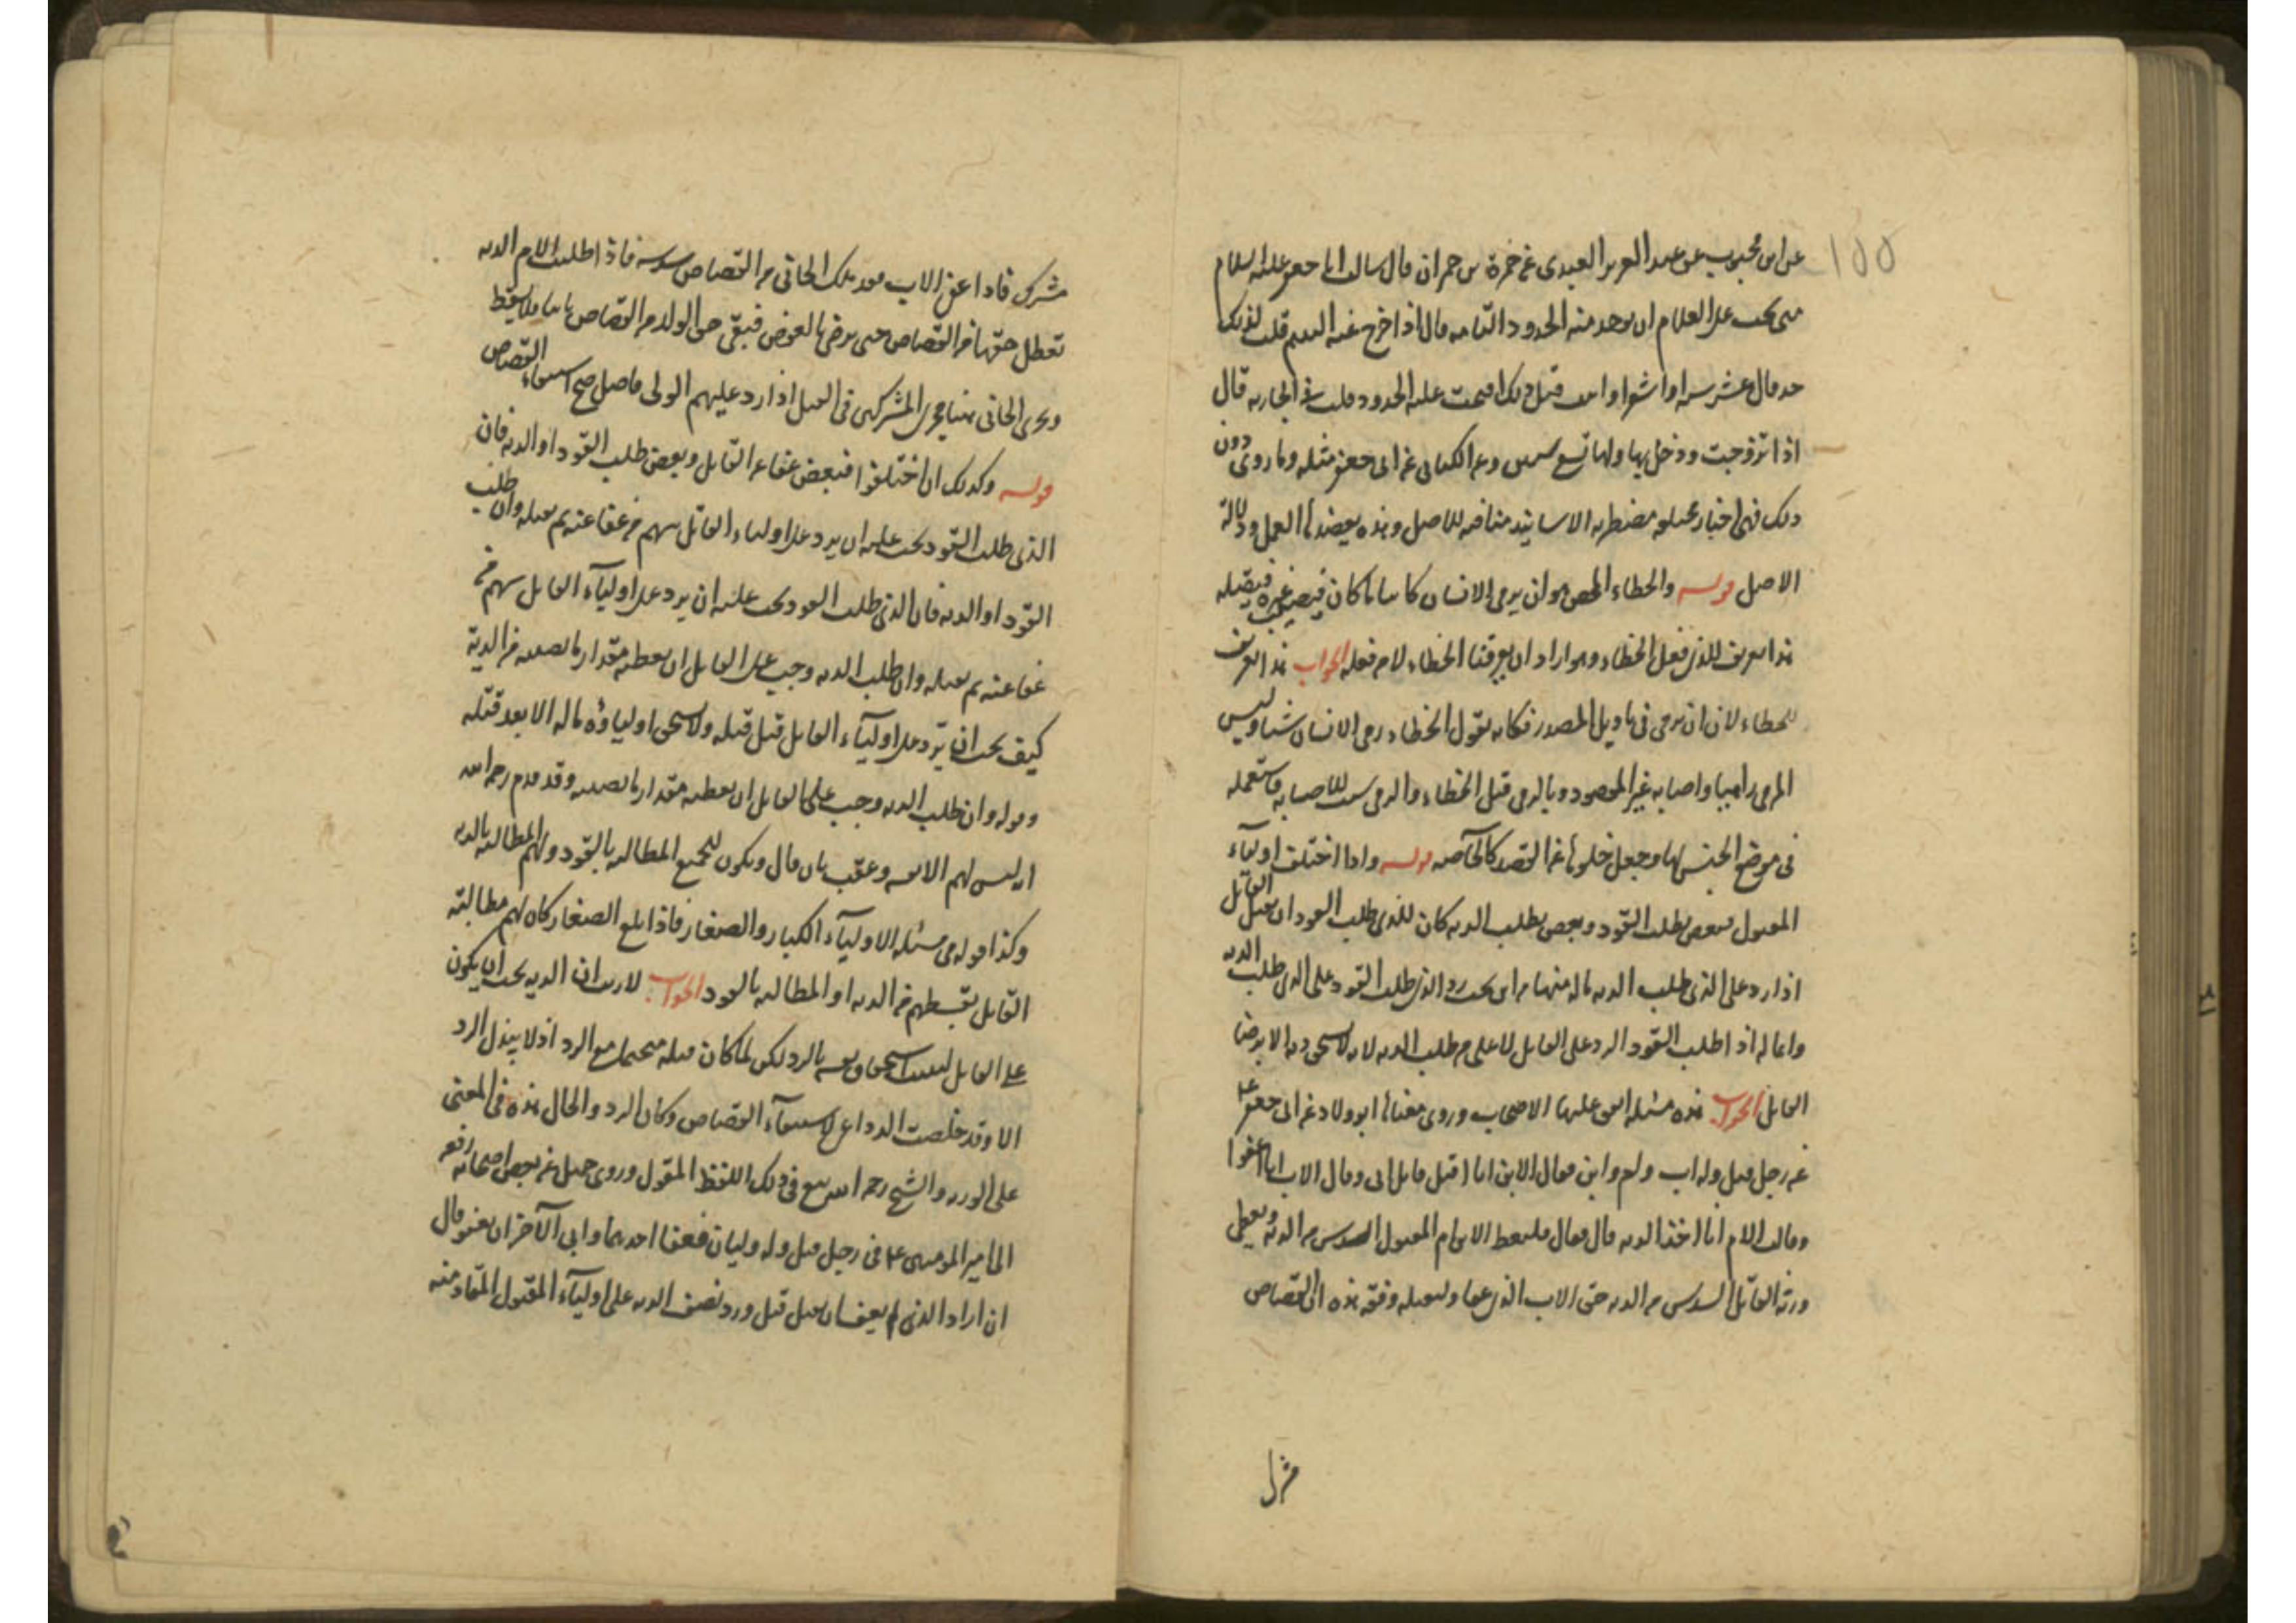 عن ابن محبوب عن عبد العزيز العبدى عن حمزة بن حمران قال سالت ابا جعفر عليه السلام
متى يجب على الغلام ان يوخذ منه الحدود التامه قال اذا خرج عنه اليتم قلت لذلك
حد قال عشر سنه او اشعر او انبت قبل ذلك اقيمت عليه الحدود قلت فالجاريه قال
اذا تزوجت ودخل بها ولها تسع سنين وعن الكناسى عن ابى جعفر مثله وما روى دون
ذلك فهى اخبار مضطربه الاسانيد منافيه للاصل وهذه يعضدها العمل ودلالة
الاصل قوله والخطاء المحض هو ان يرمى الانسان كائنا ما كان فيصيب غيره فيقتله
هذا تعريف للذى فعل الخطاء وهو اراد ان يعرفنا الخطاء لا من فعله الجواب هذا تعريف
للخطاء لان ان يرمى فى تاويل المصدر فكانه يقول الخطاء رمى الانسان شيئا وليس
المرمى واصابه غير المقصود وبالرمى قتل الخطاء والرمى سبب للاصابه فاستعمله
فى موضع الجنس لها وجعل خلوها عن القصد كالخاصه قوله واذا اختلف اولياء
المقتول فبعض يطلب القود وبعض يطلب الديه كان للذى طلب القود ان يقتل القاتل
اذا رد على الذى طلب الديه ماله منها من اين يجب رد الذى طلب القود على الذى طلب الديه
وانما له اذا طلب القود الرد على القاتل لا على من طلب الديه لانه لا يستحق ديه الا برضا
القاتل الجواب هذه مسئله افتى عليها الاصحاب وروى معناها ابو ولاد عن ابى جعفر ع
عن رجل قتل وله اب وام وابن فقال الابن انا اقتل قاتل ابى وقال الاب انا اعفوا
وقالت الام انا اخذ الديه قال فقال فليعط الابن ام المقتول السدس من الديه ويعطى
ورثة القاتل السدس من الديه حق الاب الذى عفا وليقتله وفقه هذه ان القصاص
مشترك
مشترك فاذا عفى الاب فقد ملك الجانى من القصاص سدسه فاذا طلبت الام الديه
تعطل حقها من القصاص حتى ترضى بالعوض فيبقى حق الولد من القصاص ثابتا فلا يسقط
ويجرى الجانى هنا مجرى المشتركين فى القتل اذا رد عليهم الولى فاصل صح استيفاء القصاص
قوله وكذلك ان اختلفوا فبعض عفا عن القاتل وبعض طلب القود او الديه فان
الذى طلب القود يجب عليه ان يرد على اولياء القاتل سهم من عفا عنه ثم يقتله وان طلب
القود او الديه فان الذى طلب القود يجب عليه ان يرد على اولياء القاتل سهم من
عفا عنه ثم يقتله وان طلب الديه وجب على القاتل ان يعطيه مقدار ما يصيبه من الدية
كيف يجب ان يرد على اولياء القاتل قبل قتله ولا يستحق اولياؤه ماله الا بعد قتله
وقوله وان طلب الديه وجب على القاتل ان يعطيه مقدار ما يصيبه وقد قدم رحمه الله
انه ليس لهم الا نفسه وعقب بان قال ويكون للجميع المطالبه بالقود ولهم المطالبه بالديه
وكذا قوله فى مسئله الاولياء الكبار والصغار فاذا بلغ الصغار كان لهم مطالبته
القاتل بقسطهم من الديه او المطالبه بالقود الجواب لا ريب ان الديه يجب ان يكون
على القاتل ليثبت استحقاق نفسه بالرد لكن لما كان قتله متحتما مع الرد اذ لا يبذل الرد
الا وقد خلصت الدواعى لاستيفاء القصاص وكان الرد والحال هذه فى المعنى
على الورثه والشيخ رحمه الله تبع فى ذلك اللفظ المنقول وروى جميل عن بعض اصحابه رفعه
الى امير المومنين ع فى رجل قتل وله وليان فعفا احدهما وابى الآخر ان يعفو قال
ان اراد الذى لم يعف ان يقتل قتل ورد نصف الديه على اولياء المقتول المقاد منه